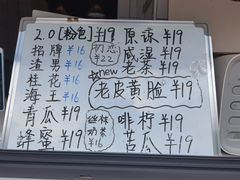 2.0[粉包]¥19
招牌¥16
渣男¥16
桂花¥16
海王¥16
青瓜¥19
蜂蜜¥19
初恋
¥22
new
老皮黄脸¥19
奶茶
¥16
原味¥19
咸湿¥19
老茶¥19
啡柠¥19
苦瓜¥19